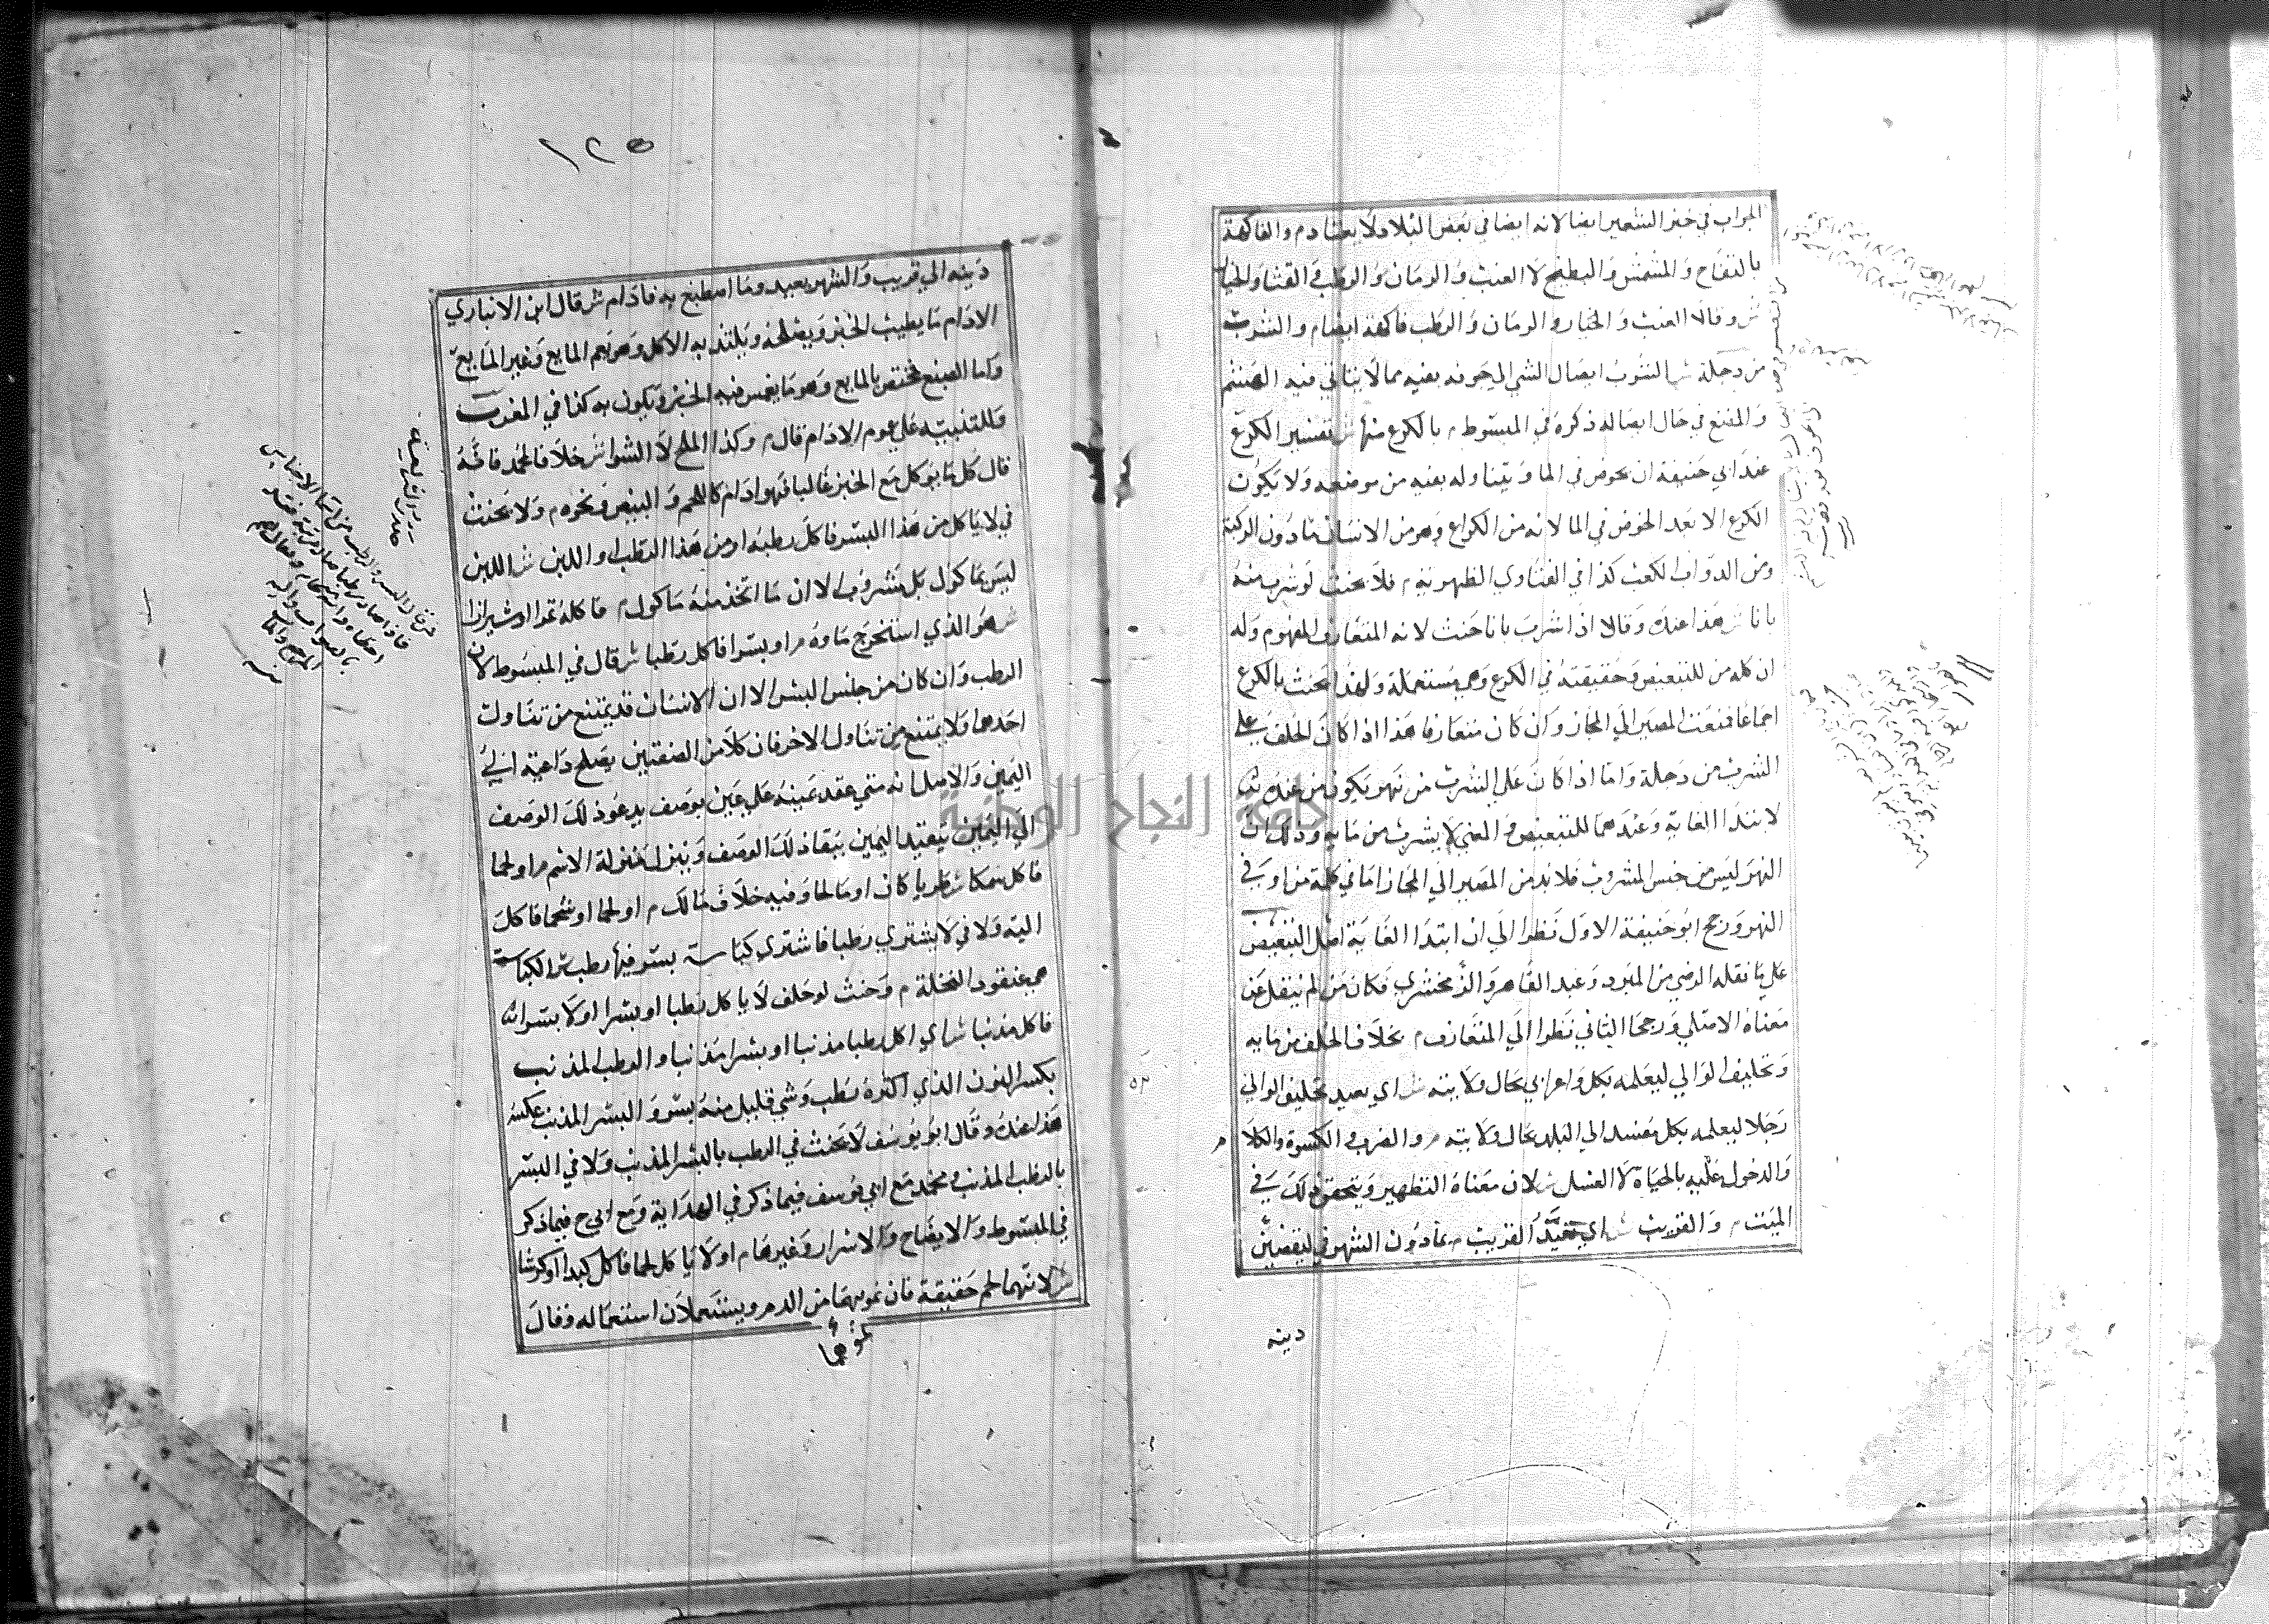 الجواب في خبز الشعير ايضا لانه ايضا في بعض البلاد لا يعتاد م والفاكهة
بالتفاح والمشمش والبطيخ لا العنب والرمان والرطب والقثا والخيار
ش وقالا العنب والخيار والرمان والرطب فاكهة ايضا م والشرب
من دجلة ش الشرب ايصال الشي الي جوفه بفيه مما لا يتاتي فيه الهشم
والمضغ في حال ايصاله ذكره في المبسوط م بالكرع منها ش تفسير الكرع
عند ابي حنيفة ان يخوض في الما ويتناوله بفيه من موضعه ولا يكون
الكرع الا بعد الخوض في الما لانه من الكراع وهو من الانسان ما دون الركبة
ومن الدواب الكعب كذا في الفتاوي الظهيرية م فلا يحنث لو شرب منه
بانا ش هذا عنده وقالا اذا شرب بانا حنث لانه المتعارف المفهوم وله
ان كلمة من للتبعيض وحقيقته في الكرع وهي مستعملة ولهذا يحنث بالكرع
اجماعا فمنعت المصير الي المجاز وان كان متعارفا هذا اذا كان الحلف علي
الشرب من دجلة واما اذا كان علي الشرب من نهر يكون من عنده
لابتدا الغاية وعندهما للتبعيض والمعني لا يشرب من مايه وذلك ان
النهر ليس من جنس المشروب فلا بد من المصير الي المجاز اما في كلمة من او في
النهر ورجح ابو حنيفة الاول نظرا الي ان ابتدا الغاية اصل التبعيض
علي ما نقله الرضي من المبرد وعبد القاهر والزمخشري فكان من لم ينقل عن
معناه الاصلي ورجحا الثاني نظرا الي المتعارف م بخلاف الحلف من مايه
وتحليف الوالي ليعلمه بكل داعر اتي بحال ولايته ش اي يقيد تحليف الوالي
رجلا ليعلمه بكل مفسد اتي البلد بحال ولايته م والضرب والكسوة والكلام
والدخول عليه بالحياة لا الغسل ش لان معناه التطهير ويتحقق ذلك في
الميت م والقريب ش اي تقيد القريب م بما دون الشهر في ليقضين
دينه
١٢٥
دينه الي قريب والشهر بعيد وما اصطبغ به فادام ش قال ابن الانباري
الادام ما يطيب الخبز ويصلحه ويلتذ به الاكل وهو يعم المايع وغير المايع
واما الصبغ فمختص بالمايع وهو ما يغمس فيه الخبز ويكون به كذا في المغرب
وللتنبيه علي عموم الادام قال م وكذا الملح لا الشوا ش خلافا لمحمد فانه
قال كل ما يوكل مع الخبز غالبا فهو ادام كاللحم والبيض ونحوه م ولا يحنث
في لا ياكل من هذا البسر فاكل رطبه او من هذا الرطب او اللبن ش اللبن
ليس بماكول بل مشروب الا ان ما اتخذ منه ماكول م فاكله تمرا او شيرازا
ش هو الذي استخرج ماوه م او بسرا فاكل رطبا ش قال في المبسوط لان
الرطب وان كان من جنس البسر الا ان الانسان قد يمتنع من تناول
احدهما ولا يمتنع من تناول الاخر فان كلا من الصفتين يصلح داعية الي
اليمين والاصل انه متي عقد يمينه علي عين بوصف يدعو ذلك الوصف
الي اليمين يتقيد اليمين ببقا ذلك الوصف وينزل منزلة الاسم م او لحما
فاكل سمكا ش طريا كان او مالحا وفيه خلاف مالك م او لحما او شحما فاكل
الية ولا في لا يشتري رطبا فاشتري كباسة بسر فيها رطب ش الكباسة
هي عنقود النخلة م وحنث لو حلف لا ياكل رطبا او بسرا او لا بسرا
فاكل مذنبا ش اي اكل رطبا مذنبا او بسرا مذنبا والرطب المذنب
بكسر النون الذي اكثره رطب وشي قليل منه بسر والبسر المذنب عكسه
هذا عنده وقال ابو يوسف لا يحنث في الرطب بالبسر المذنب ولا في البسر
بالرطب المذنب ومحمد مع ابي يوسف فيما ذكر في الهداية ومع ابي ح فيما ذكر
في المبسوط والايضاح والاسرار وغيرها م او لا ياكل لحما فاكل كبدا او كرشا
ش لانهما لحم حقيقة فان نموهما من الدم ويستعملان استعماله وقال
نموهما
جامعة النجاح الوطنية